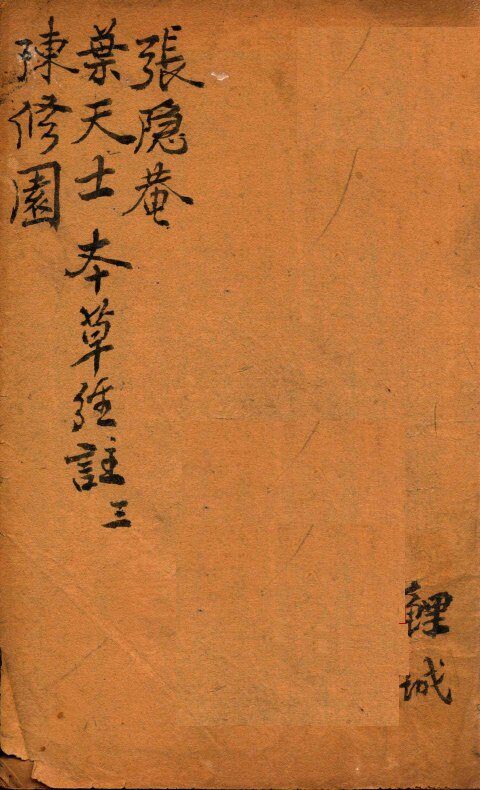 張隐菴
葉天士本草經註三
陳修園
鯉城